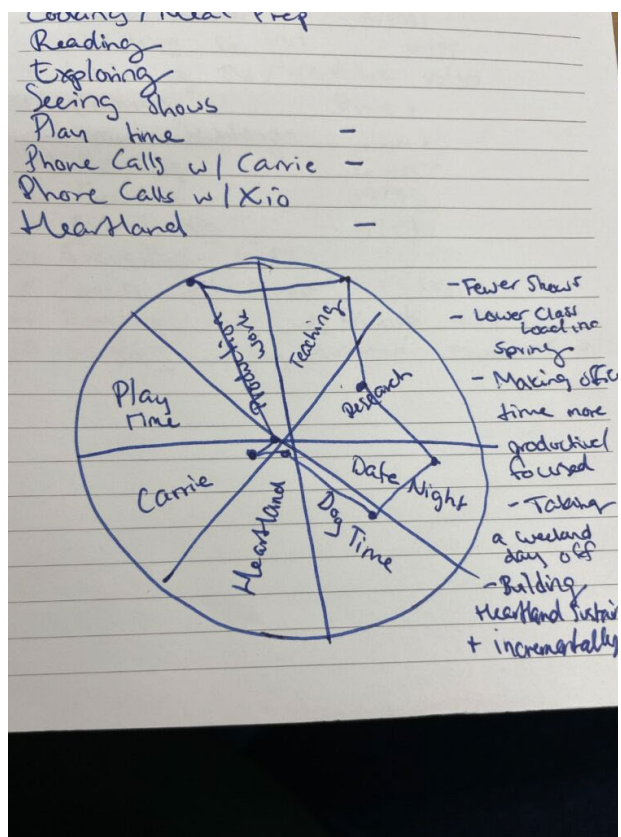 Cooking / Meal Prep
Reading
Exploring
Seeing Shows
Play time -
Phone Calls w/ Carrie -
Phone Calls w/ Xio
Heartland -
Production
work
Teaching
Research
Date Night
Dog Time
Heartland
Carrie
Play
Time
- Fewer Shows
- Lower Class
Load in
spring
- Making offic
time more
productive/
focused
- Taking
a weekend
day off
- Building
Heartland Sustai
+ incrementally